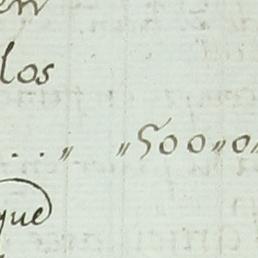 en
los
... „ „500„0„
que